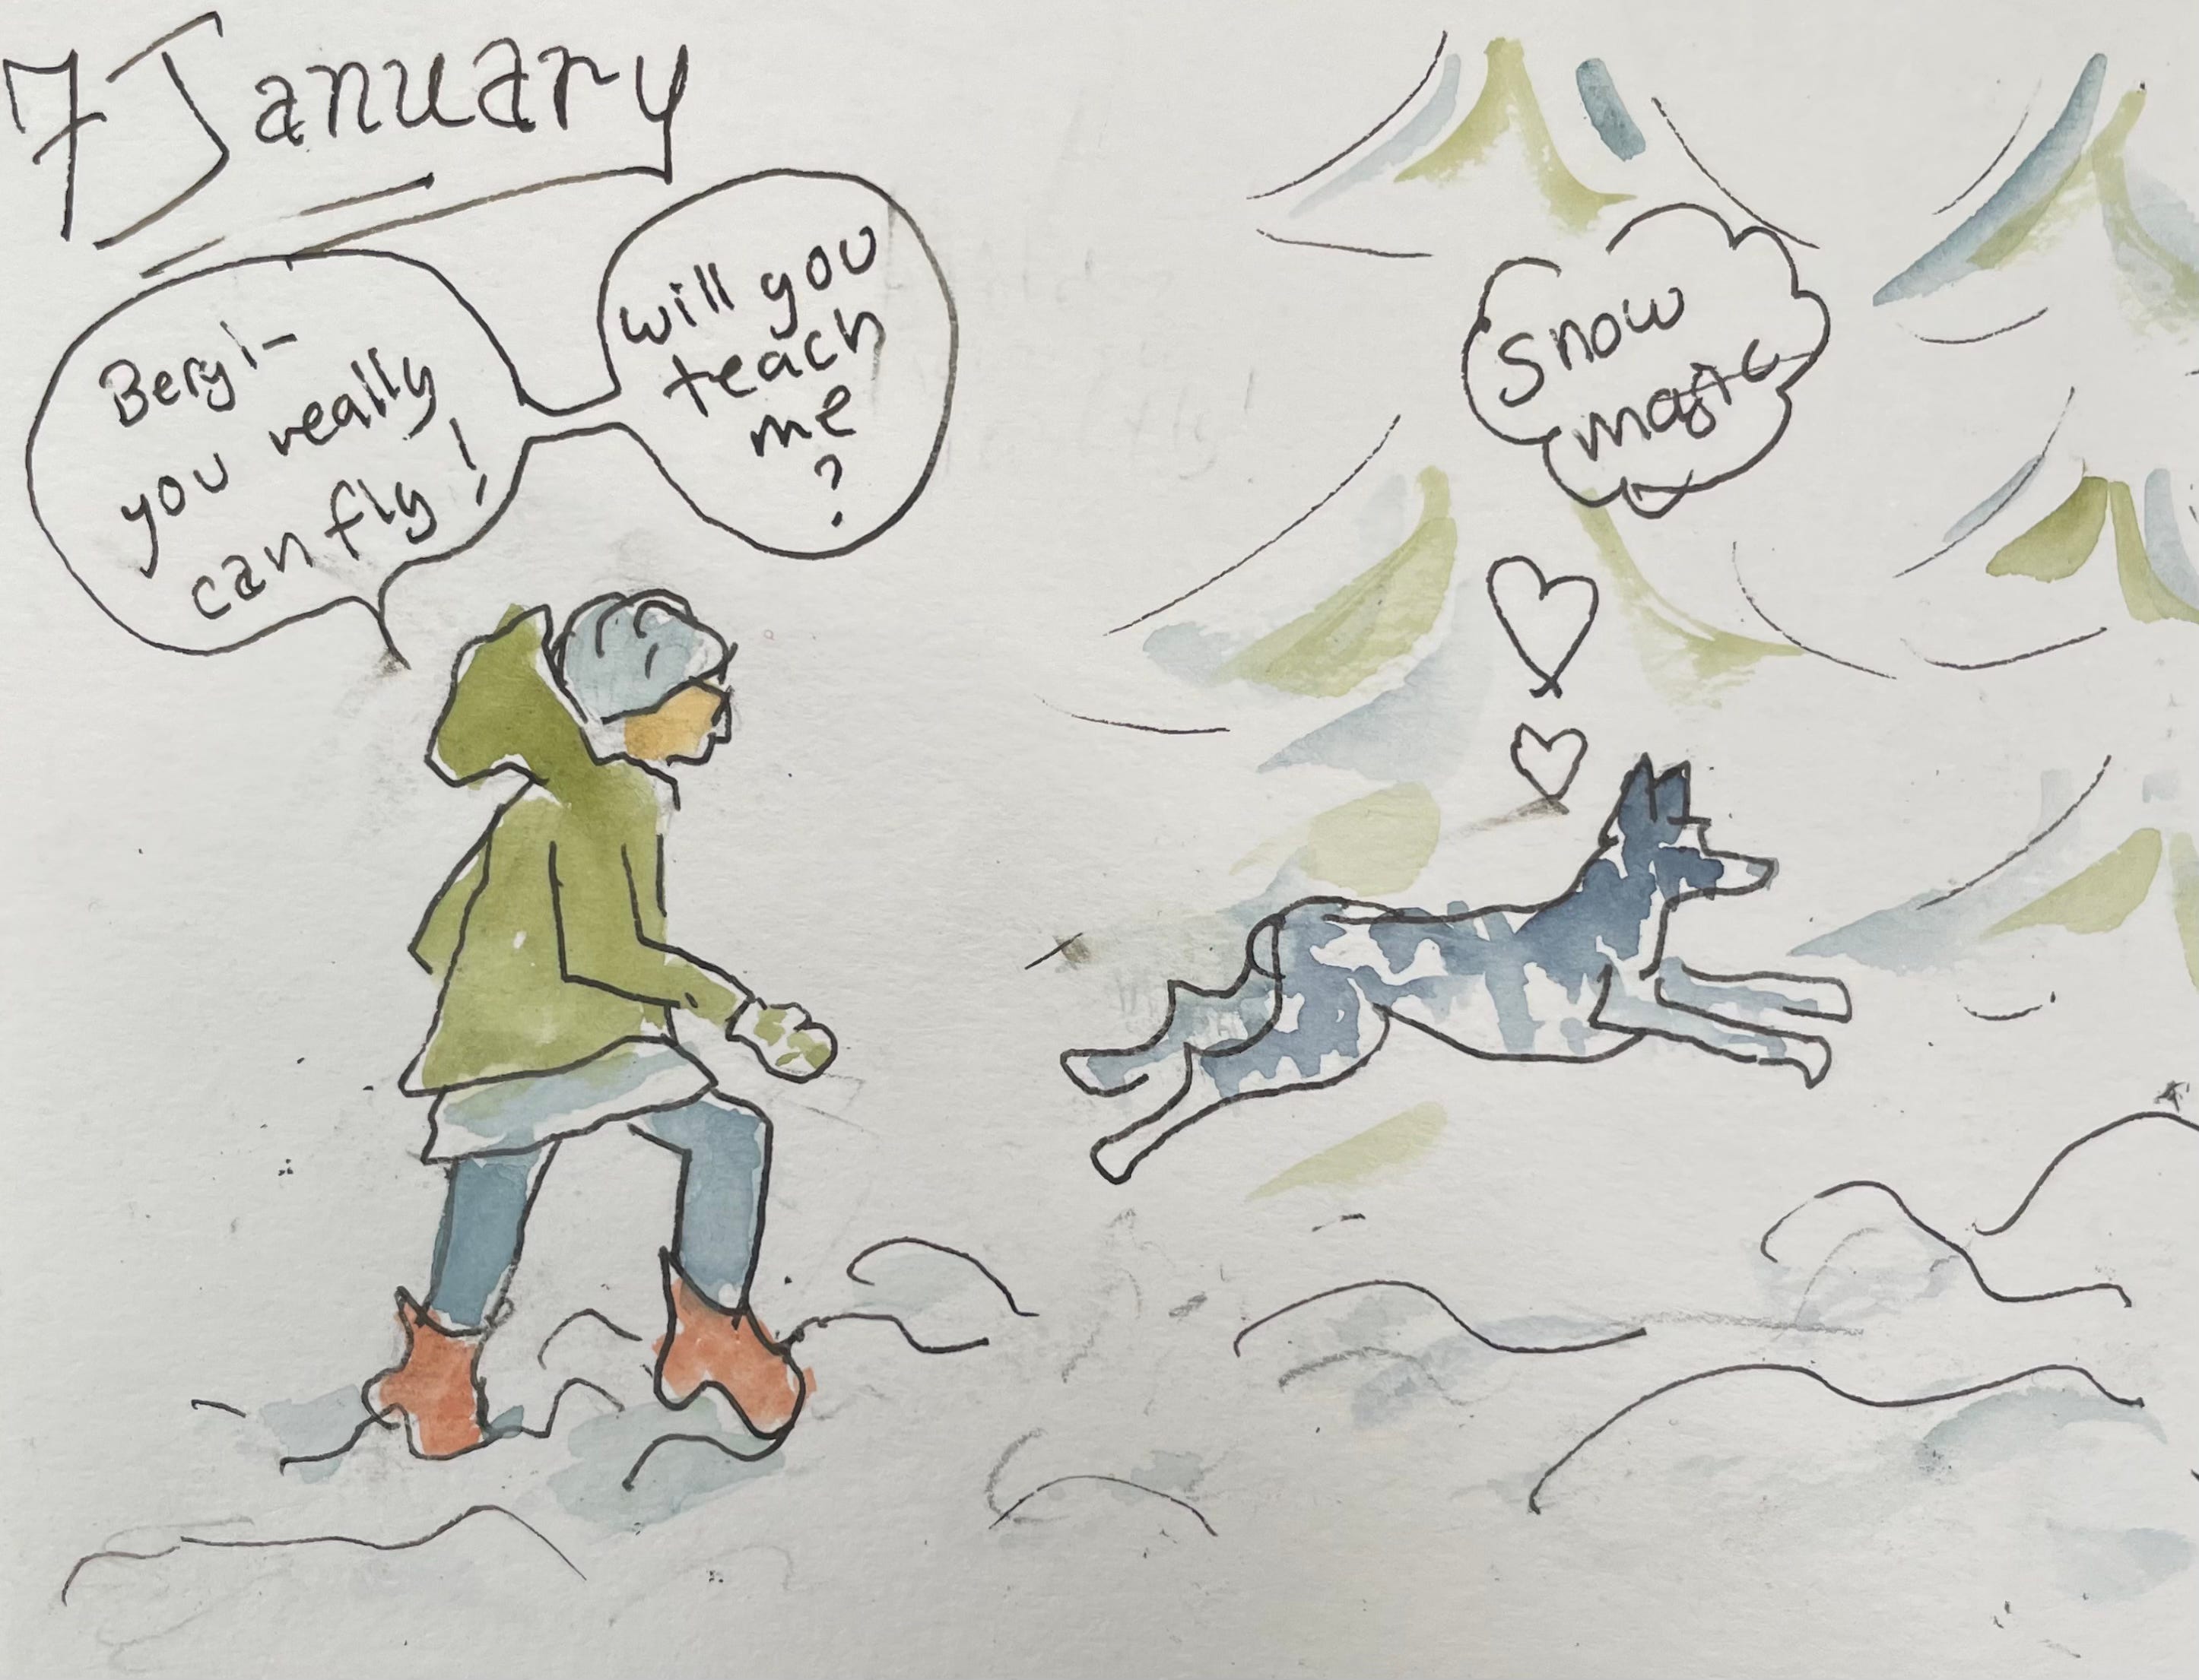 7 January
Bergi-
you really
can fly!
will you
teach
me
?
Snow
magic